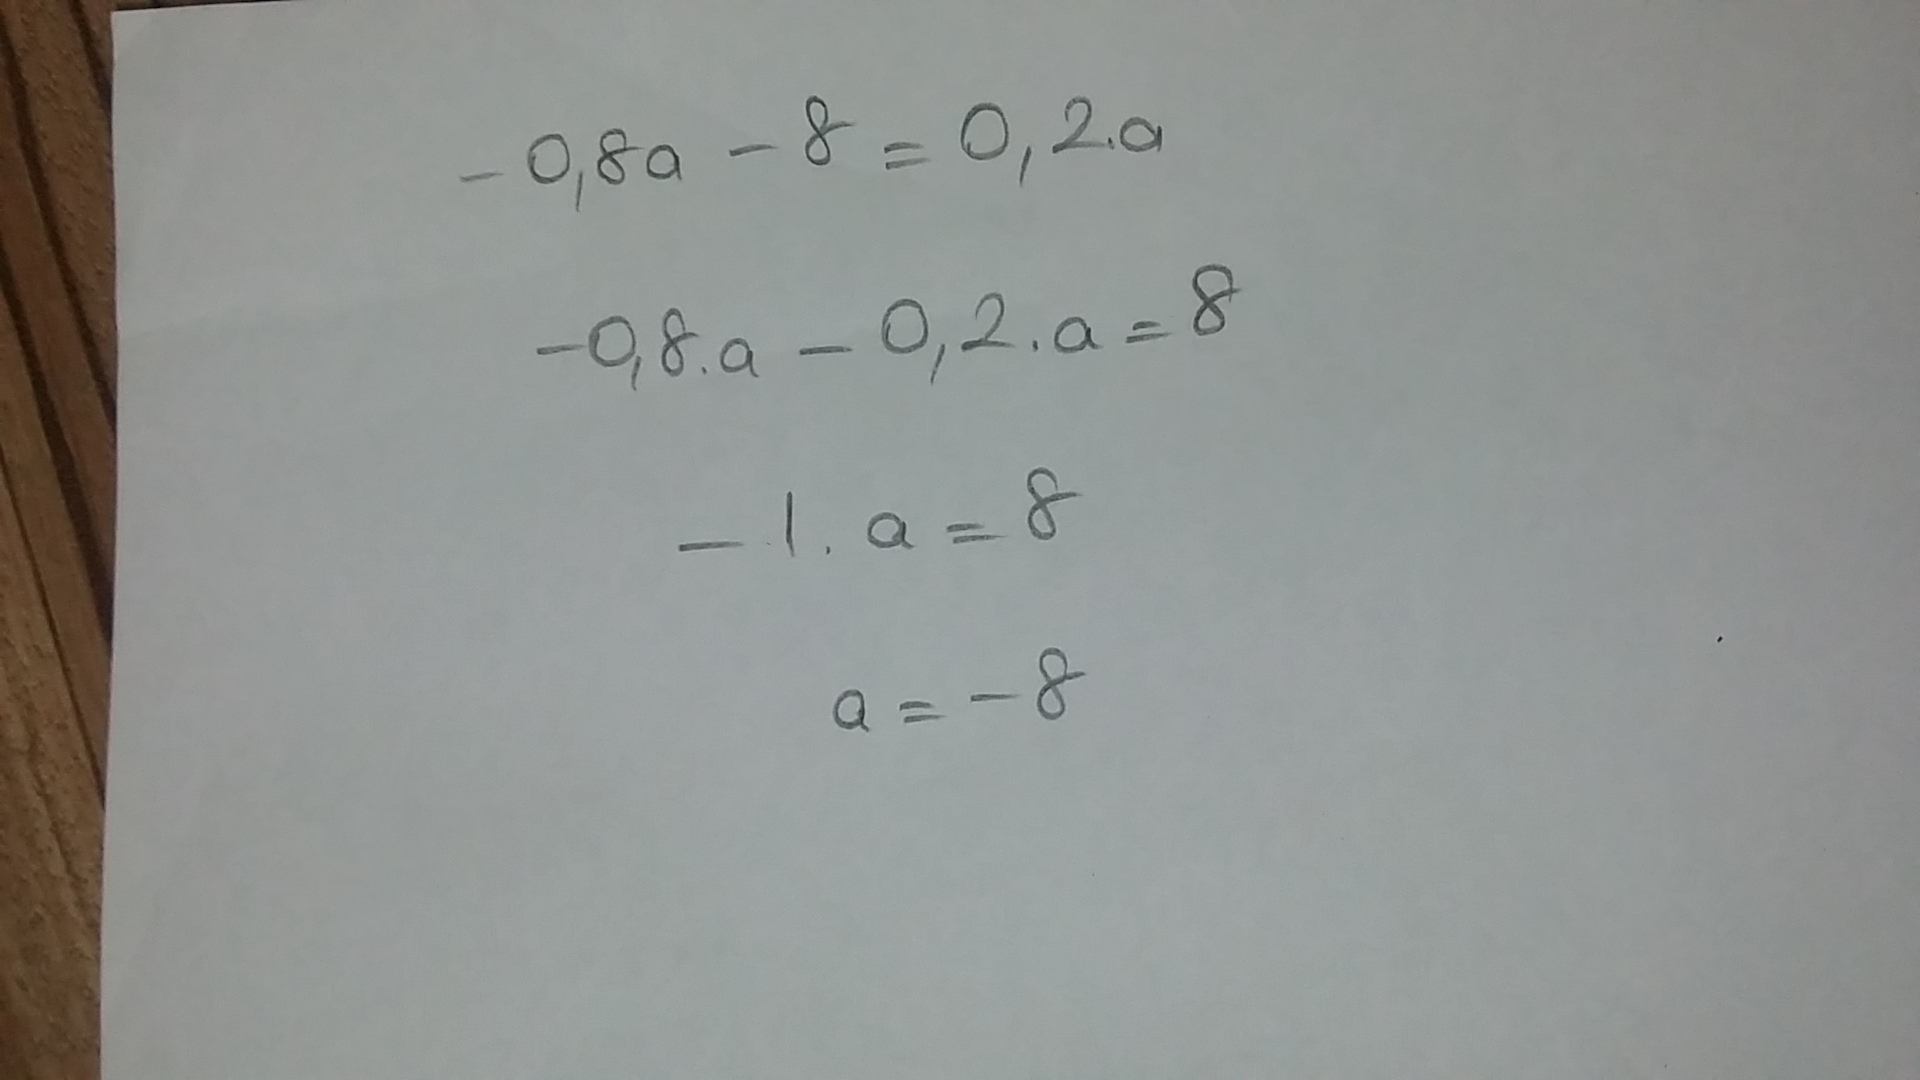 -0,8a - 8 = 0,2.a
-0,8.a - 0,2.a = 8
-1.a = 8
a = -8